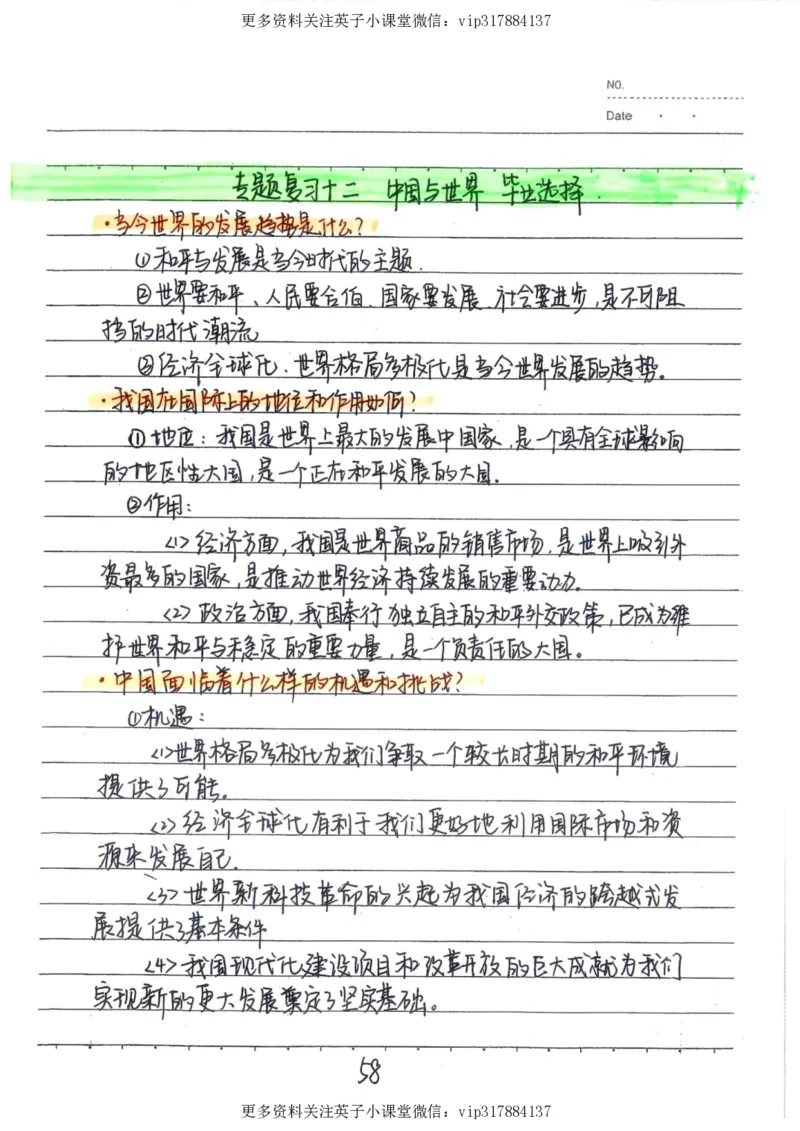 更多资料关注英子小课堂微信：vip317884137
NO.
Date
专题复习十二 中国与世界 毕业选择
·当今世界的发展趋势是什么？
①和平与发展是当今时代的主题.
②世界要和平、人民要合作、国家要发展、社会要进步，是不可阻
挡的时代潮流
③经济全球化、世界格局多极化是当今世界发展的趋势。
·我国在国际上的地位和作用如何？
①地位：我国是世界上最大的发展中国家，是一个具有全球影响
的地区性大国，是一个正在和平发展的大国。
②作用：
<1>经济方面，我国是世界商品的销售市场，是世界上吸引外
资最多的国家，是推动世界经济持续发展的重要动力。
<2>政治方面，我国奉行独立自主的和平外交政策，已成为维
护世界和平与稳定的重要力量，是一个负责任的大国。
·中国面临着什么样的机遇和挑战？
①机遇：
<1>世界格局多极化为我们争取一个较长时期的和平环境
提供了可能。
<2>经济全球化有利于我们更好地利用国际市场和资
源来发展自己.
<3>世界新科技革命的兴起为我国经济的跨越式发
展提供了基本条件
<4>我国现代化建设项目和改革开放的巨大成就为我们
实现新的更大发展奠定了坚实基础。
58
更多资料关注英子小课堂微信：vip317884137